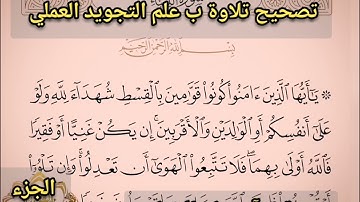 تصحيح تلاوة ب علم التجويد العملي
بِسْمِ اللَّهِ الرَّحْمَٰنِ الرَّحِيمِ
۞ يَٰٓأَيُّهَا ٱلَّذِينَ ءَامَنُوا۟ كُونُوا۟ قَوَّٰمِينَ بِٱلْقِسْطِ شُهَدَآءَ لِلَّهِ وَلَوْ
عَلَىٰٓ أَنفُسِكُمْ أَوِ ٱلْوَٰلِدَيْنِ وَٱلْأَقْرَبِينَ ۚ إِن يَكُنْ غَنِيًّا أَوْ فَقِيرًا
فَٱللَّهُ أَوْلَىٰ بِهِمَا ۖ فَلَا تَتَّبِعُوا۟ ٱلْهَوَىٰٓ أَن تَعْدِلُوا۟ ۚ وَإِن تَلْوُۥٓا۟
الجزء